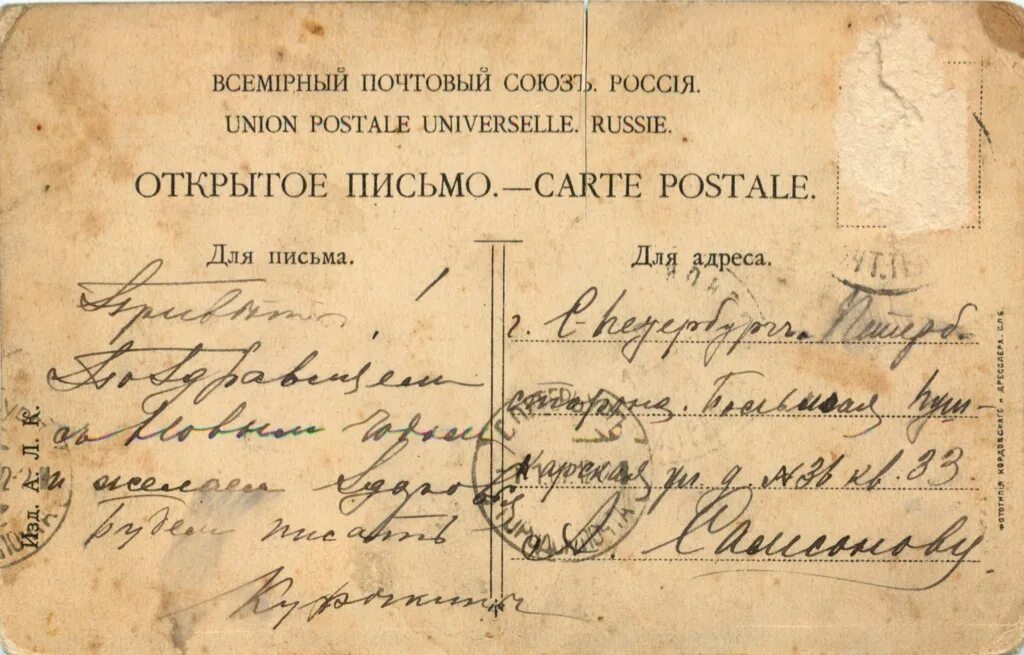 ВСЕМІРНЫЙ ПОЧТОВЫЙ СОЮЗЪ. РОССІЯ.
UNION POSTALE UNIVERSELLE. RUSSIE.
ОТКРЫТОЕ ПИСЬМО.—CARTE POSTALE.
Для письма.
Привѣтъ!
Поздравляем
съ Новым Годом
и желаем Здоров
Будем писать
Курочкины
Для адреса.
г. С-Петербургъ. Петерб.
сторона. Большая Пуш-
карская ул. д. №36 кв. 33
Самсонову
Изд. А. Л. К.
ФОТОТИПІЯ КОРДОВСКАГО и ДРЕССЛЕРА. С.П.Б.